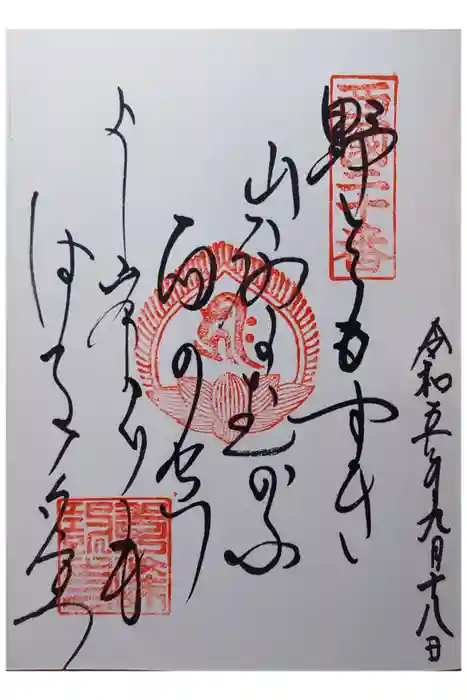 西國二十番
野をもすぎ
山路にむかふ
雨の空
よし峯よりも
はるゝ夕立
令和五年九月十八日